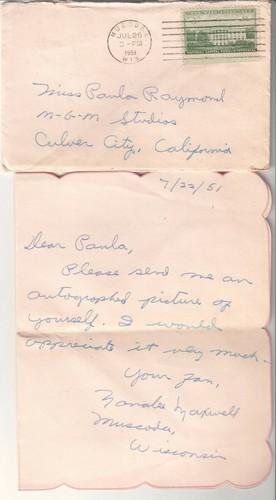 MUSCODA
JUL 26
3-PM
1951
WIS
Miss Paula Raymond
M-G-M Studios
Culver City, California
7/23/51
Dear Paula,
Please send me an
autographed picture of
yourself. I would
appreciate it very much.
Your fan,
Nanalee Maxwell
Muscoda,
Wisconsin